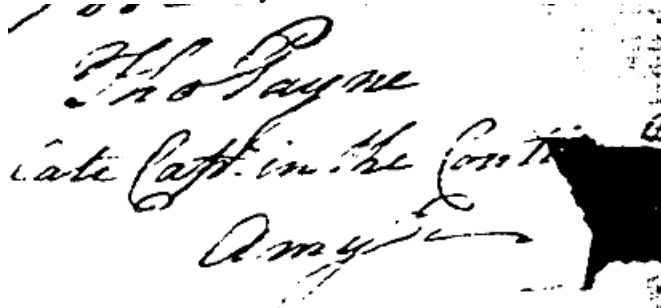 Tho Payne
Late Capt. in the Conti
Amy &c